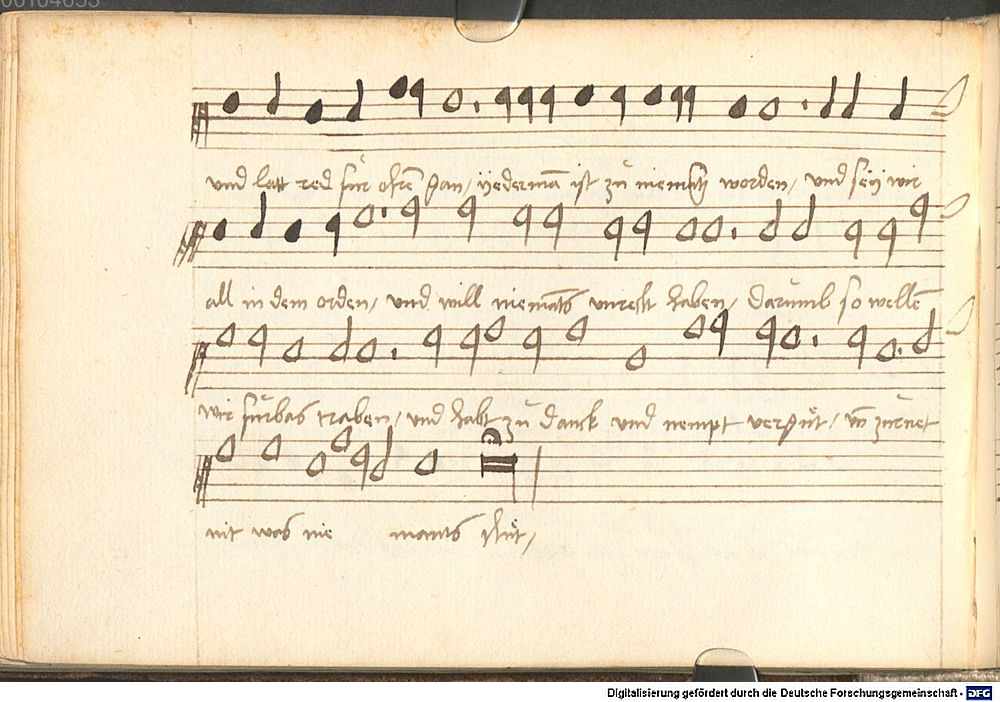 und laſt red für ohrē gan, yederman̄ iſt zů niemātz worden, und ſeÿ wir
all in dem orden, und will niemāts unrecht haben, darumb ſo wellē
wir fürbas traben, und habt zů danck und nempt vergůt, uñ zürnet
nit was nie mants thůt,
Digitalisierung gefördert durch die Deutsche Forschungsgemeinschaft - DFG